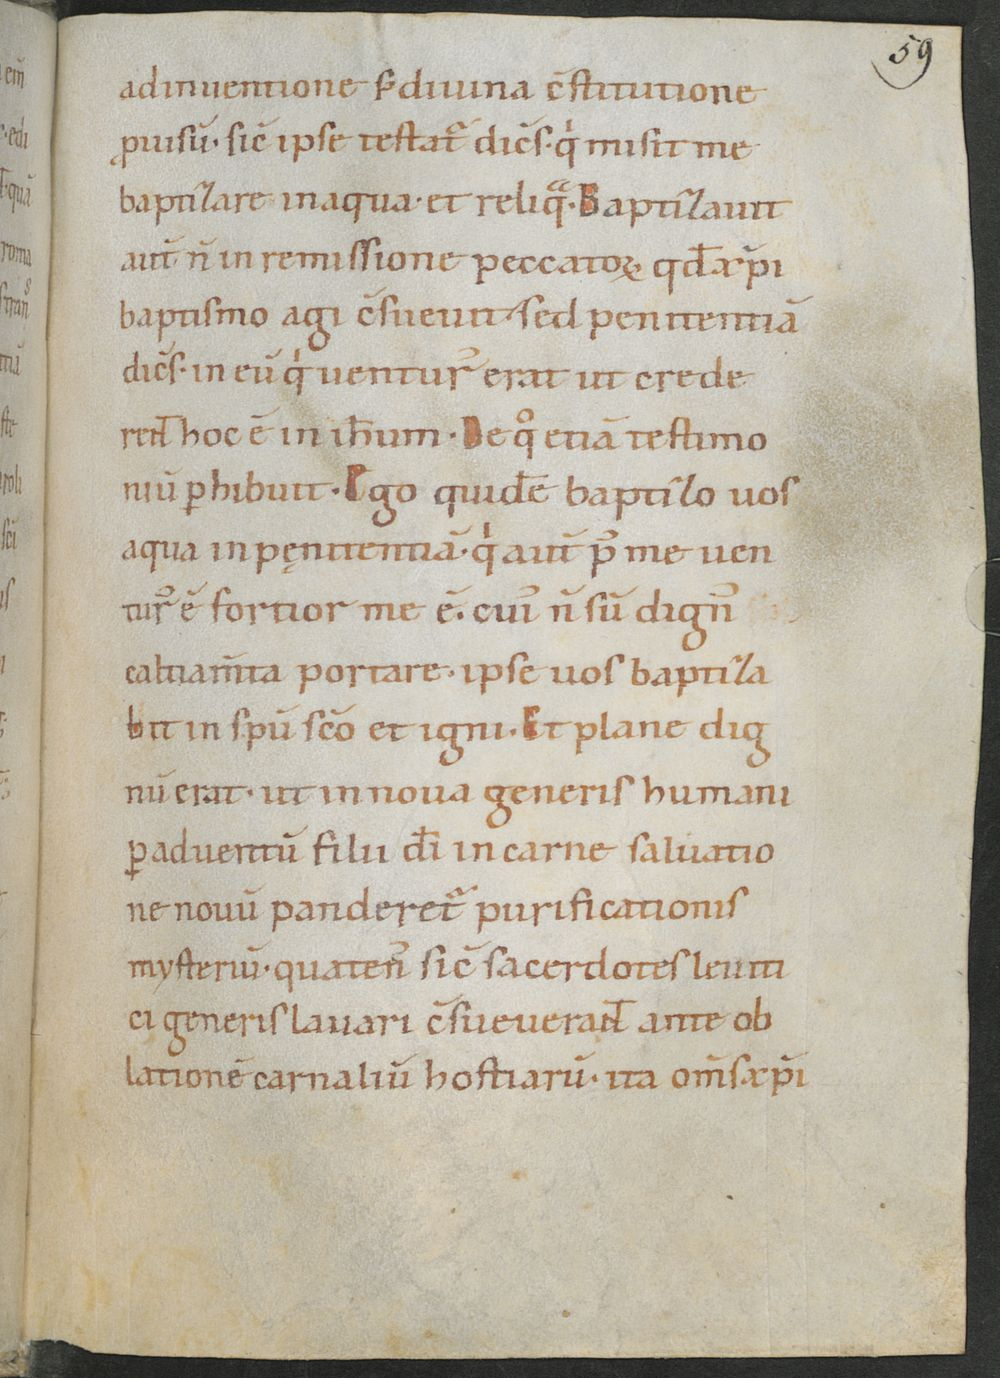 59
adinuentione s; diuina c̄stitutione
ꝓuisū· sic̄ ipse testat᷑ dic̄s· qⁱ misit me
baptizare in aqua· et reliq̄ᵃ· Baptizauit
aut̄ n̄ in remissione peccatoꝝ qd̄ xp̄i
baptismo agi c̄sueuit· sed penitentiā
dic̄s· in eū qⁱ ventur᷒ erat ut crede
rent̄ hoc ē in ih̄um· De qͦ etiā testimo
niū ꝑhibuit· Ego quidē baptizo uos
aqua in pęnitentiā· qⁱ aut̄ p᷒ me uen
tur᷒ ē fortior me ē· cui᷒ n̄ sū dign᷒
caltiam̄ta portare· ipse uos baptiza
bit in sp̄ū sc̄o et igni· Et plane dig
nū erat· ut in noua generis humani
ꝑ aduentū filii dī in carne saluatio
ne nouū panderet᷑ purificationis
mysteriū· quaten᷒ sic̄ sacerdotes leuiti
ci generis lauari c̄sueuerant̄ ante ob
lationē carnaliū hostiarū· ita om̄s xp̄i